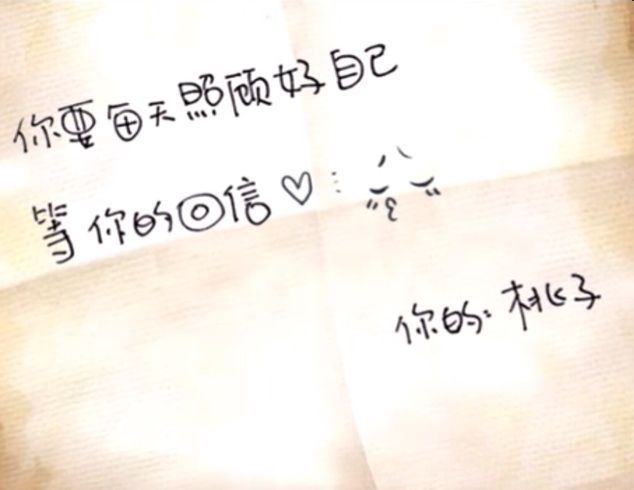 你要每天照顾好自己
等你的回信♡
你的:桃子